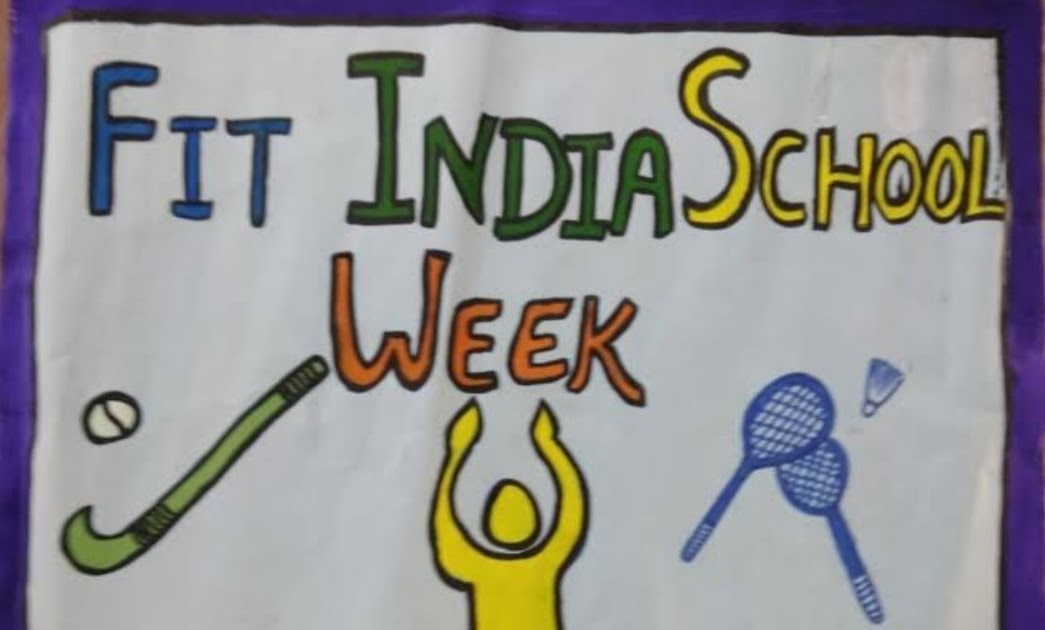 FIT INDIA SCHOOL
WEEK